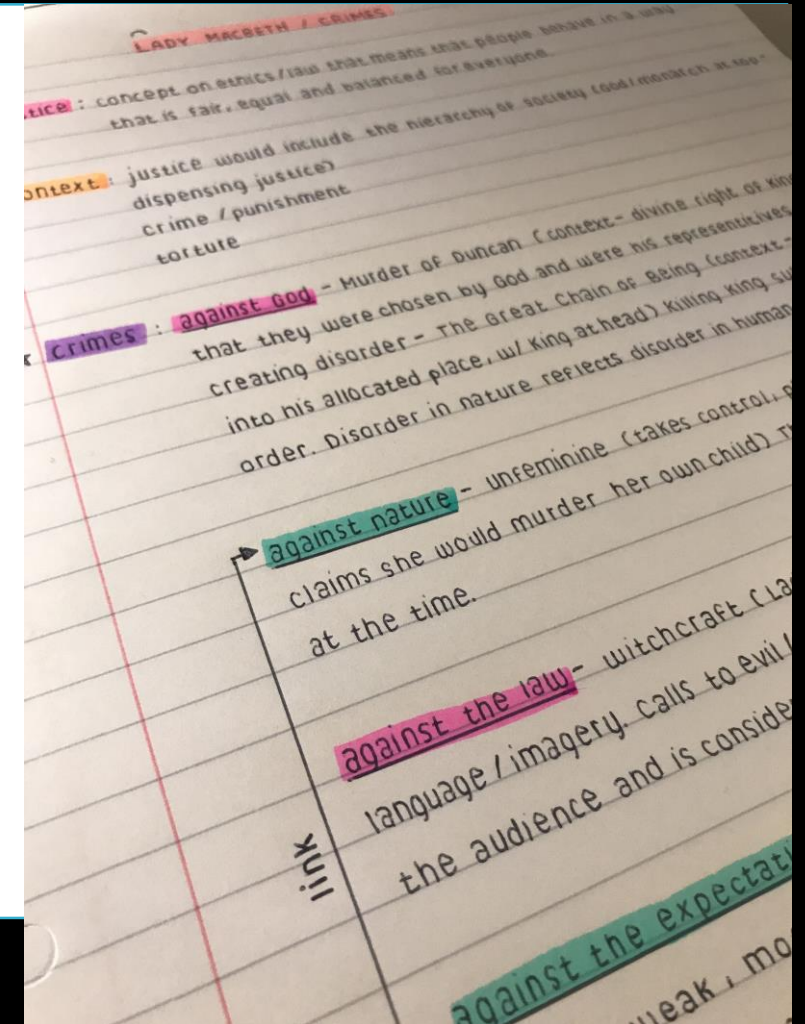 LADY MACBETH / CRIMES
tice : concept on ethics/law that means that people behave in a way
that is fair, equal and balanced for everyone.
ontext : justice would include the hierarchy of society (God/monarch at top -
dispensing justice)
crime / punishment
torture
crimes : against God - Murder of Duncan (context - divine right of Kin
that they were chosen by God and were his representitives
creating disorder - The Great Chain of Being (context -
into his allocated place, w/ King at head) Killing King su
order. Disorder in nature reflects disorder in human
against nature - unfeminine (takes control, p
claims she would murder her own child) T
at the time.
against the law - witchcraft (La
language/imagery. Calls to evil
the audience and is conside
link
against the expectati
weak, mo